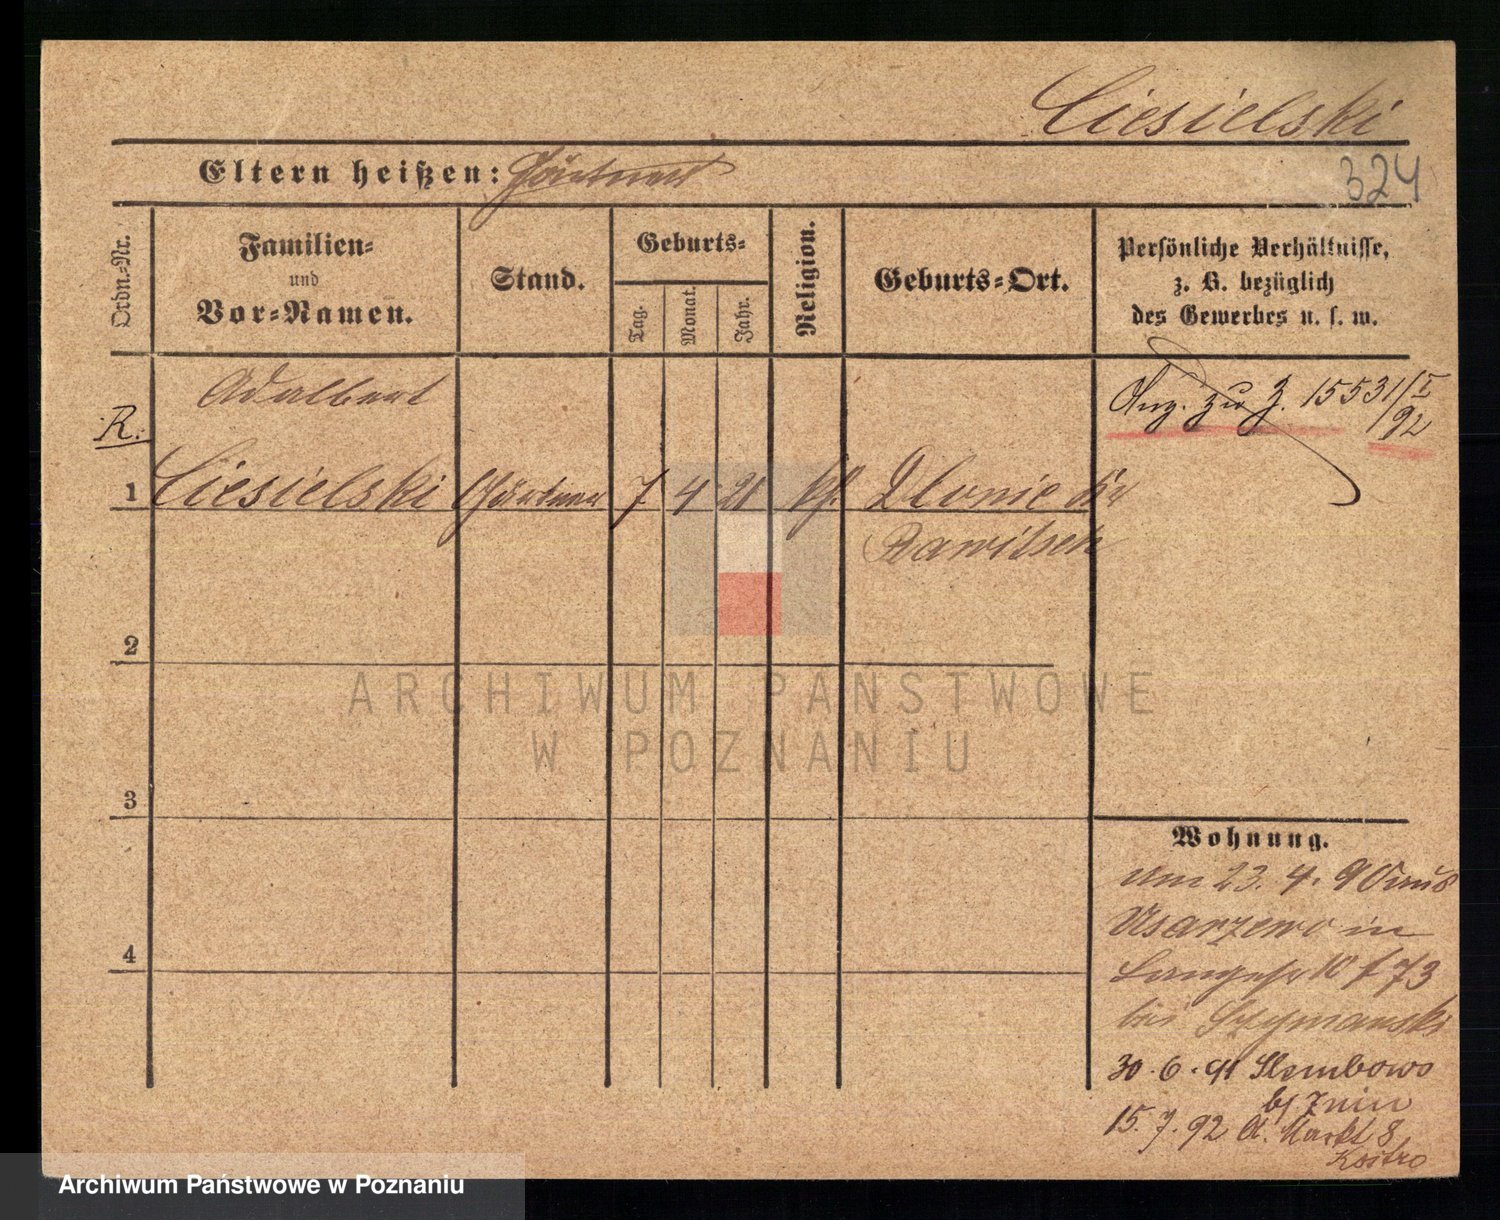 Ciesielski
Eltern heißen: Gärtner
324
Ordn.-Nr.
Familien-
und
Vor-Namen.
Stand.
Geburts-
Tag.
Monat.
Jahr.
Religion.
Geburts-Ort.
Persönliche Verhältnisse,
z. B. bezüglich
des Gewerbes u. s. w.
Adalbert
R.
1 Ciesielski Gärtner 7 4 21 kf. Dlonie Kr
Rawitsch
Anz. zu J. 15531/I
/92
2
3
4
Wohnung.
am 23. 4. 90 aus
Usarzewo in
10 f 73
bei Szymanski
30.6.91 Slembowo
b/ Znin
15.7.92 A. Markt 8
Kostro
ARCHIWUM PAŃSTWOWE
W POZNANIU
Archiwum Państwowe w Poznaniu